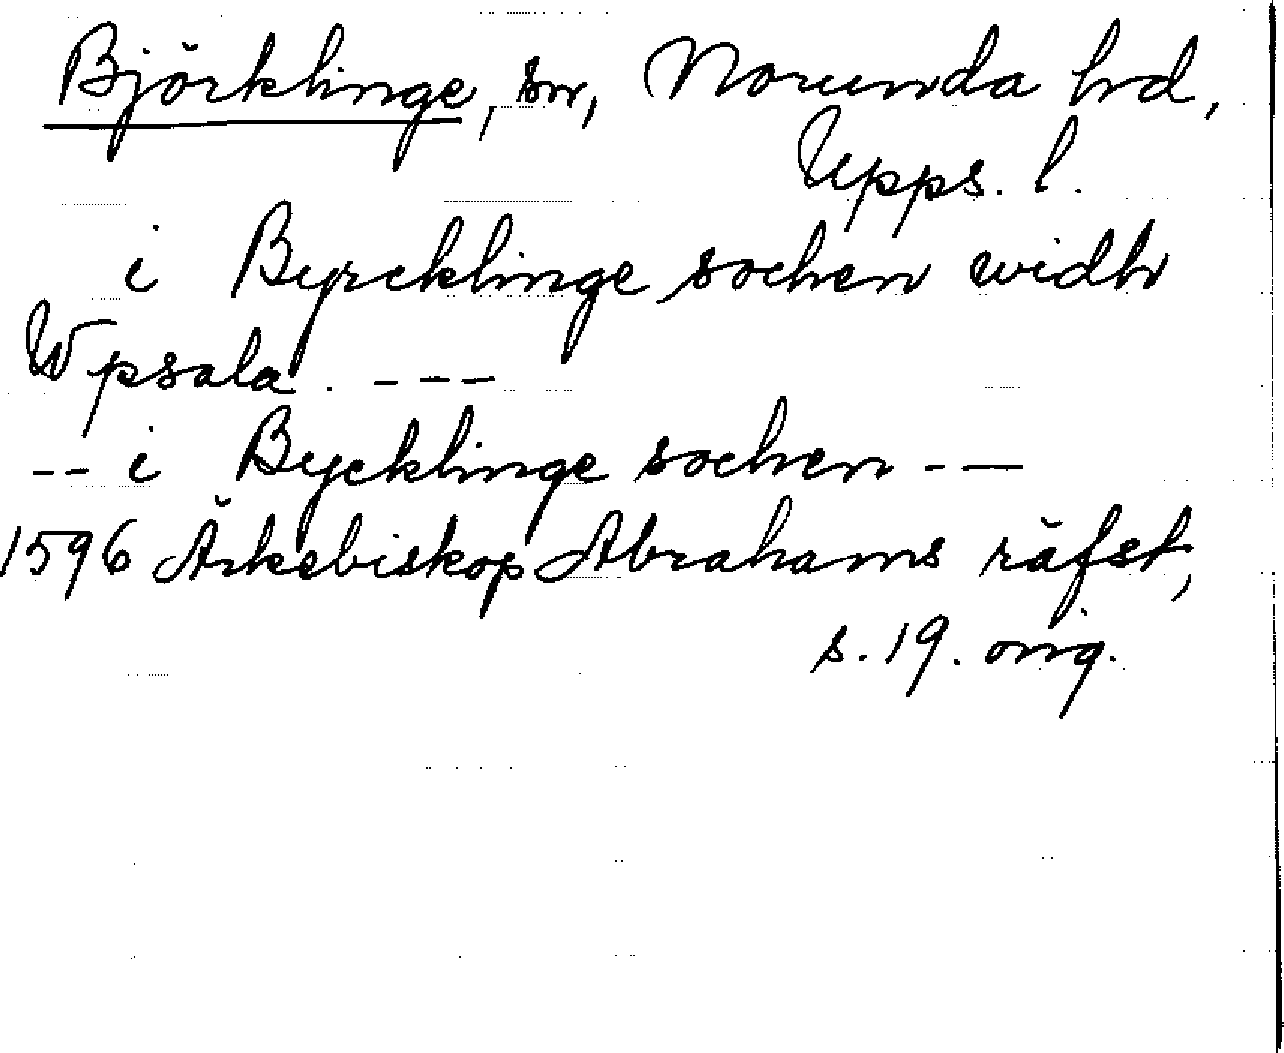 Björklinge, sn, Norunda hd,
Upps. l.
i Byrcklinge sochen widh
Wpsala. ---
-- i Bycklinge sochen --
1596 Ärkebiskop Abrahams räfst,
s. 19. orig.